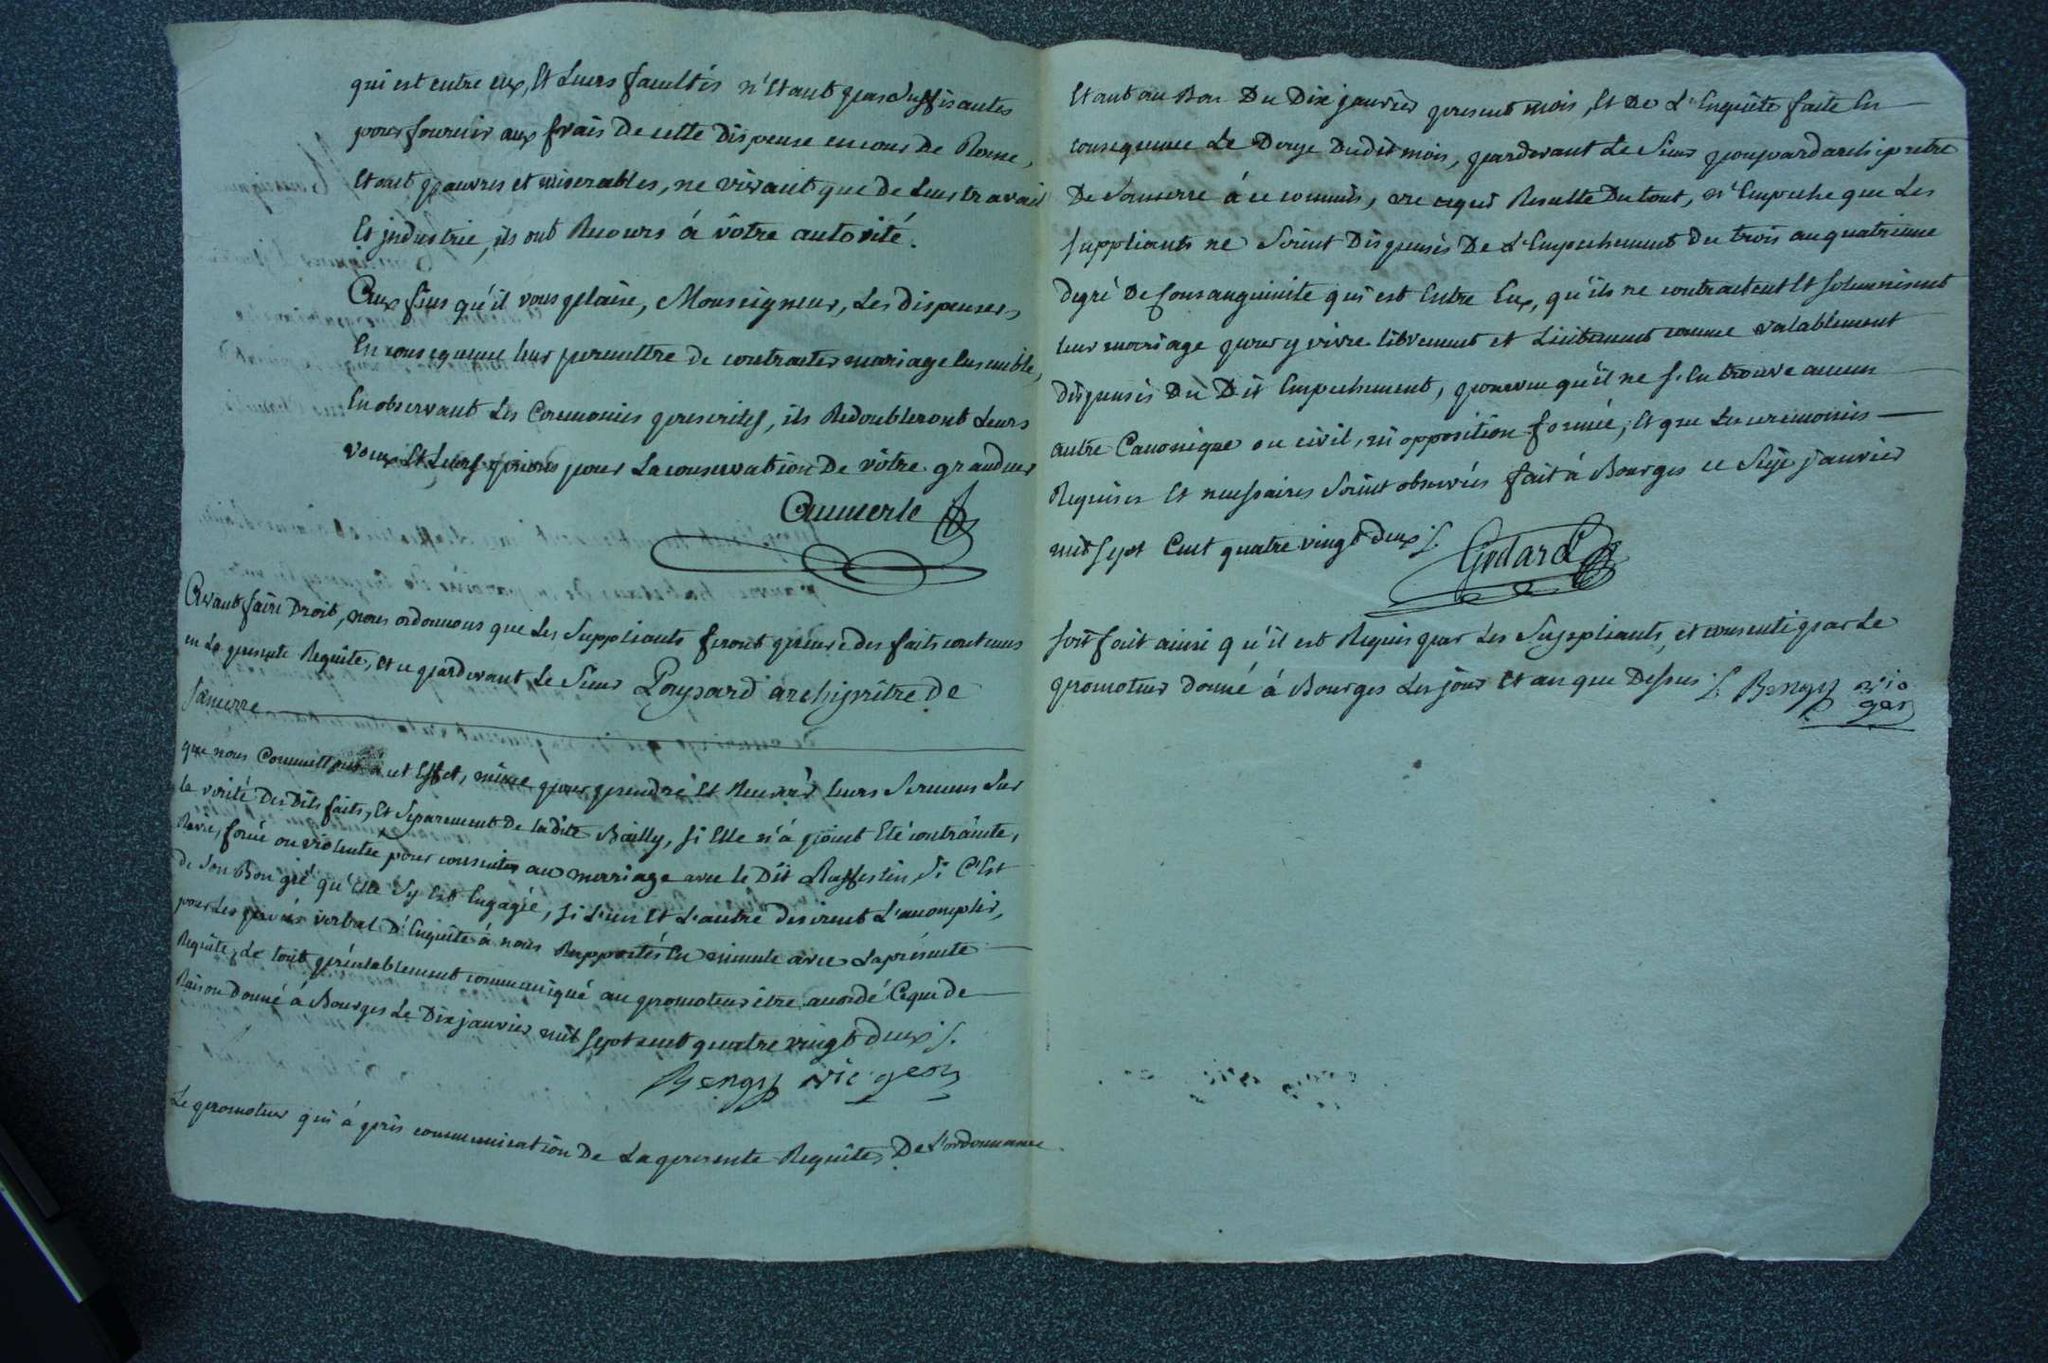 qui est entre eux, Et Leurs facultés n'Etant pas Suffisantes
pour fournir aux frais De cette Dispense en cour De Rome,
Etant pauvres et miserables, ne vivant que de Leur travail
Et jndustrie, ils ont Recours á vôtre autorité.
Aux fins qu'il vous plaise, Monseigneur, Les dispenser,
En consequence leur permettre de contracter mariage Ensemble,
En observant Les Ceremonies prescrites, ils Redoubleront Leurs
voeux Et Leurs prieres pour La conservation De vôtre grandeur
Aumerle
Avant faire Droit, nous ordonnons que Les Suppliants feront preuve des faits contenus
en La presente Requête, et ce pardevant Le Sieur Poupard archiprêtre de
Sancerre
que nous Commettons á cet Effet, même pour prendre Et Recevoir leurs Sermens Sur
la verité Des Dits faits, Et Separement De la dite Bailly, si Elle n'á point Eté contrainte,
Ravie, forcée ou violentée pour consentir au mariage avec le Dit Ruffestin, Si C'Est
de Son Bon gré qu'elle S'y Est Engagée, si L'un Et L'autre desirent L'accomplir,
pour Les procés verbal D'Enquête á nous Rapportés En minute avec La presente
Requête, Le tout préalablement communiqué au promoteur être accordé Ce que de
Raison Donné á Bourges Le Dix janvier mil Sept cent quatre vingt Deux ./.
Bengy vic gén
Le promoteur qui á pris communication De La presente Requête, De L'ordonnance
Etant au Bas Du Dix janvier present mois, Et De L'Enquête faite En
consequence Le Douze Dudit mois, pardevant Le Sieur poupard archipretre
De Sancerre á ce commis, vu ce qui Resulte Du tout, n'Empeche que Les
Suppliants ne Soient Dispensés De L'Empechement du trois au quatrieme
degré De Consanguinite qui est Entre Eux, qu'ils ne contractent Et solemnisent
leur mariage pour y vivre librement et Licitement comme valablement
dispensés Du Dit Empechement, pourvu qu'il ne s'En trouve aucun
autre Canonique ou civil, ni opposition formée, Et que Les ceremonies
Requises Et necessaires Soient observées fait á Bourges ce Seize janvier
mil sept Cent quatre vingt deux ./.
Godard
Soit fait ainsi qu'il est Requis par Les Suppliants, et consenti par Le
promoteur Donné á Bourges Les jour Et an que Dessus ./. Bengy vic
gén